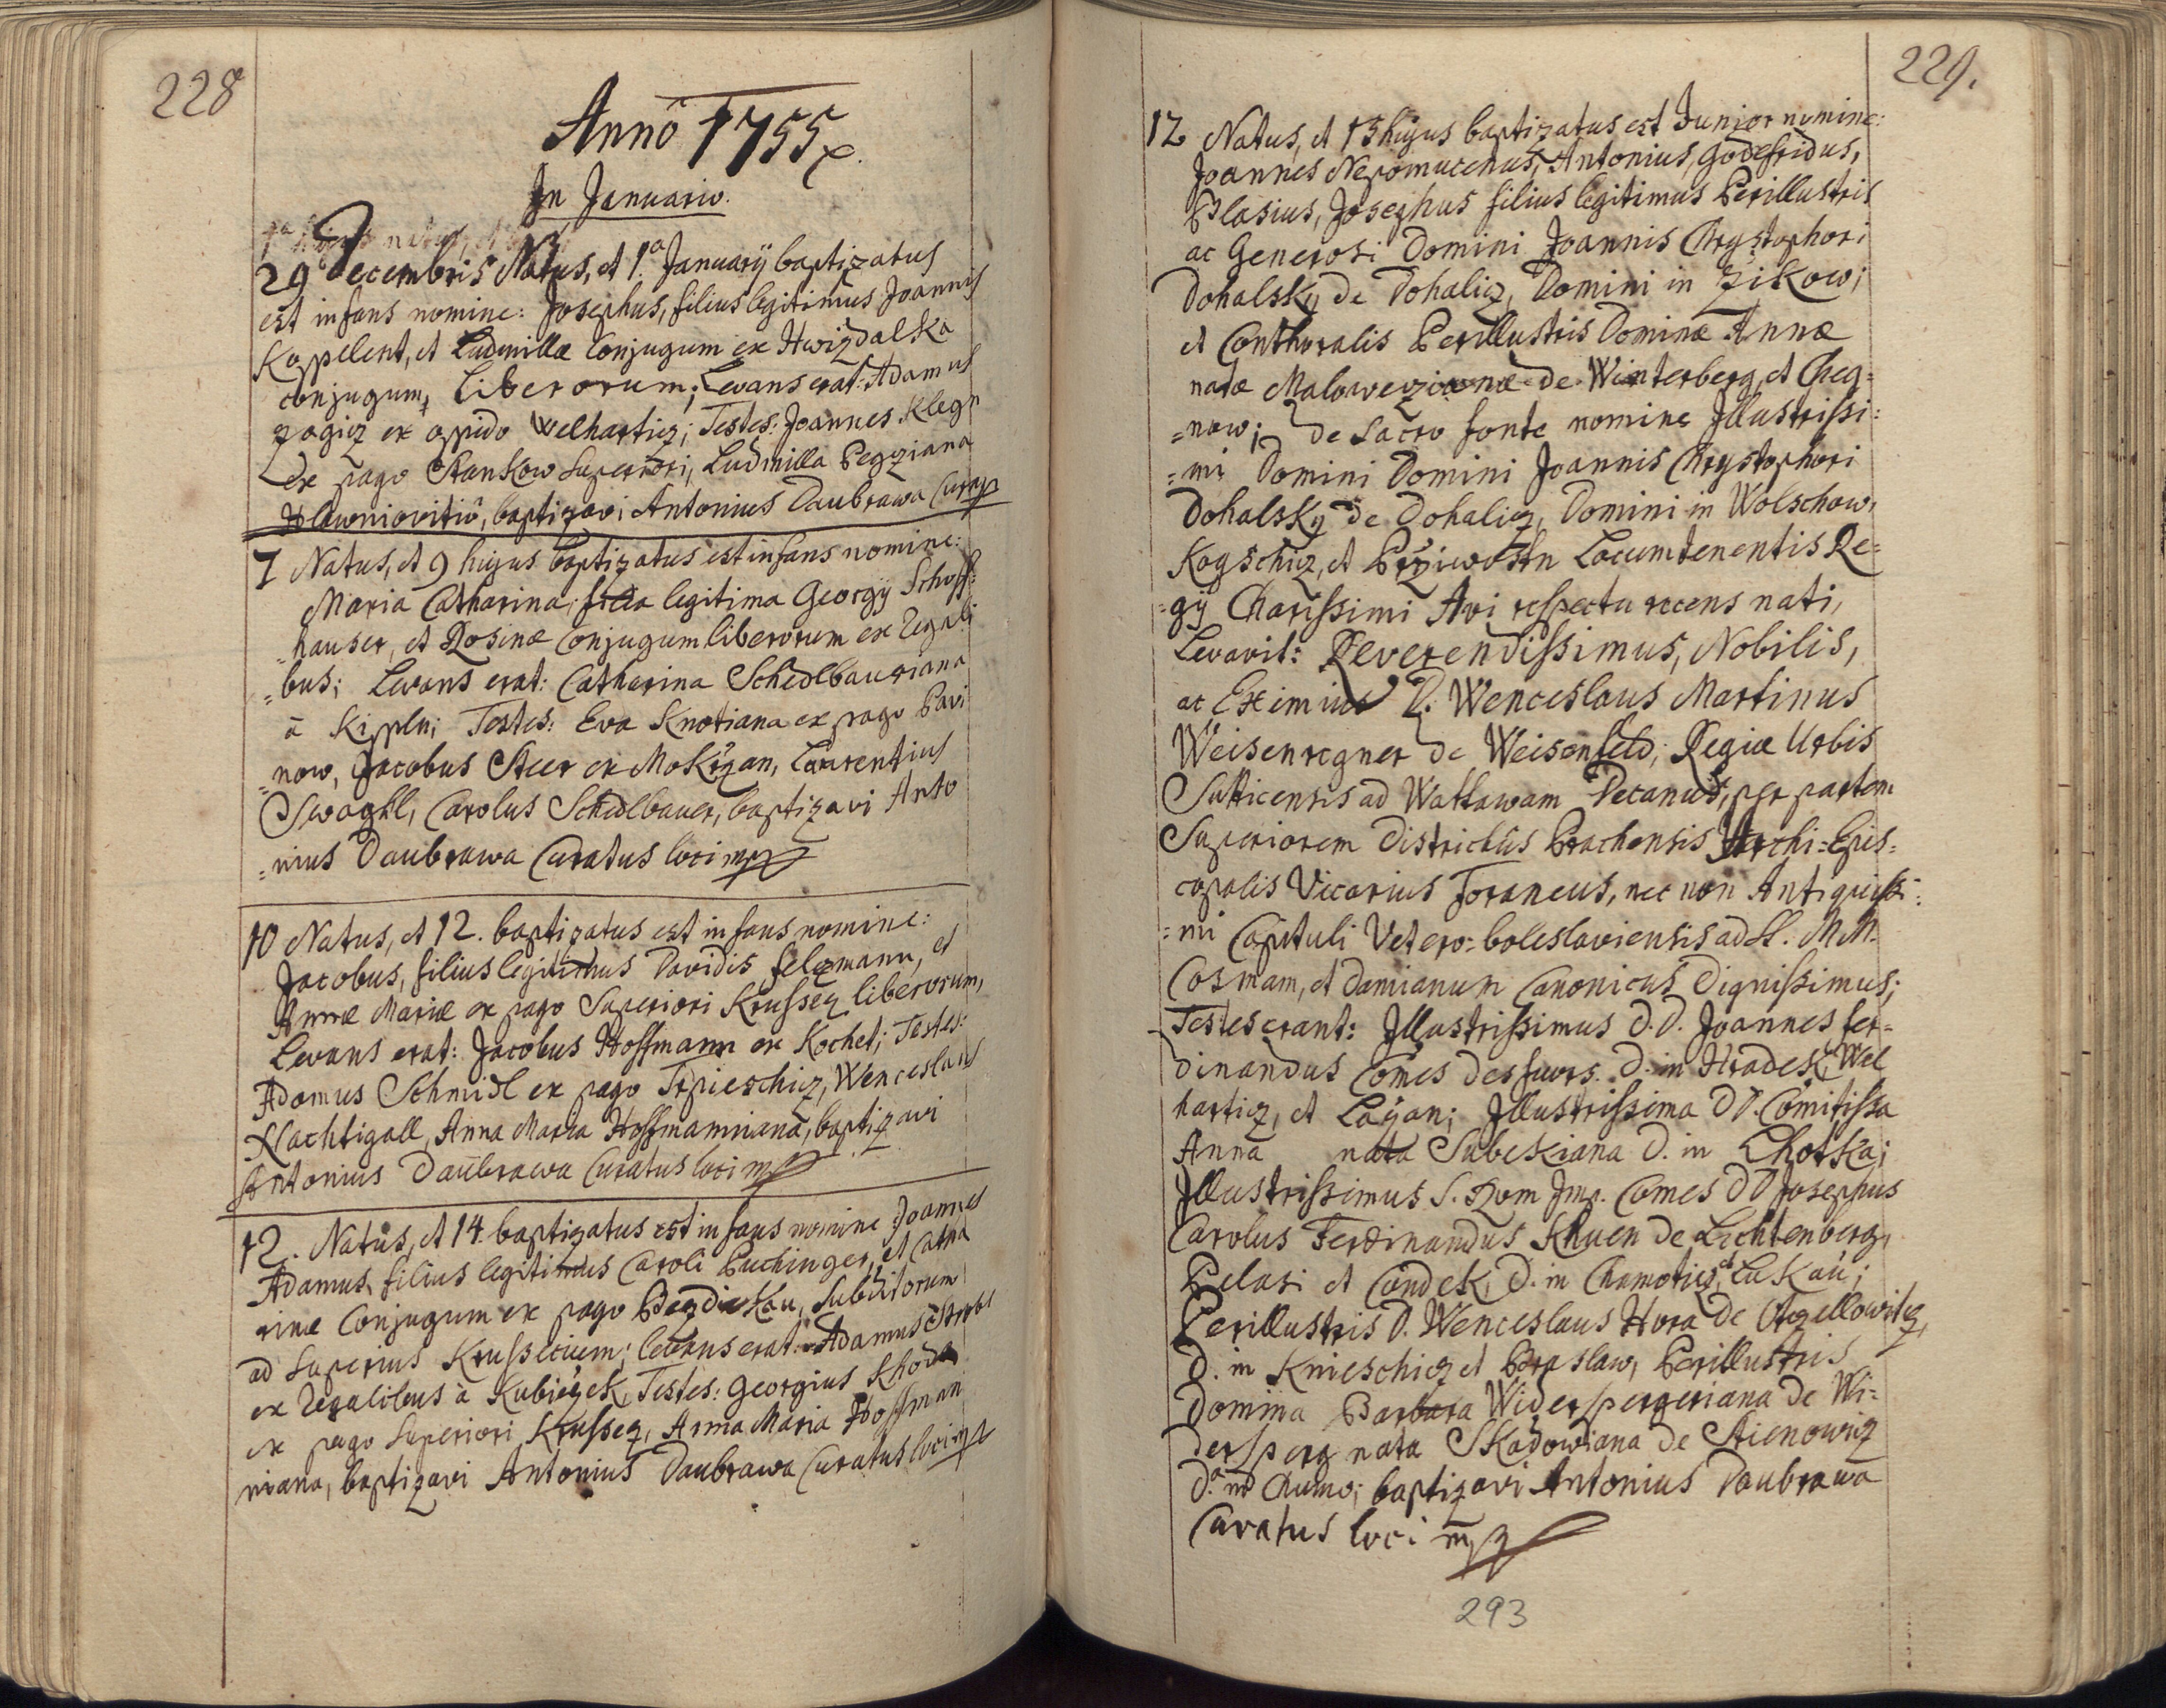 228
Annô 1755
In Januario.
1a hujus natus, et
29 Decembris Natus, et 1.a Januarÿ baptizatus
est infans nomine: Josephus, filius legitimus Joannis
Koppelent, et Ludmillæ Conjugum ex Hwizdalka
conjugum, Liberorum; Levans erat: Adamus
ex oppido Welhartiz; Testes: Joannes Klegn
de pago Stankow Superiori, Ludmilla
baptizavi Antonius Daubrawa Curatus
7 Natus, et 9 hujus baptizatus est infans nomine:
Maria Catharina, filia legitima Georgÿ Schoff=
=hauser, et Rosinæ Conjugum liberorum ex Regali
=bus; Levans erat: Catharina Schedlbauriana
à Kippln; Testes: Eva Knotiana ex pago Pavi
=now, Jacobus Steer ex Mokrzan, Laurentius
Swagkl, Carolus Schedlbauer, baptizavi Anto
=nius Daubrawa Curatus loci mp
10 Natus, et 12. baptizatus est infans nomine:
Jacobus, filius legitimus Davidis Felzmann, et
Annæ Mariæ ex pago Superiori Krussez liberorum,
Levans erat: Jacobus Hoffmann ex Kochet; Testes:
Adamus Schmidl ex pago Trpieschiz, Wenceslaus
Nachtigall, Anna Maria Hoffmanniana, baptizavi
Antonius Daubrawa Curatus loci mp
12. Natus, et 14 baptizatus est infans nomine Joannes
Adamus filius legitimus Caroli Puchinger, et Catha
rinæ Conjugum ex pago Bezdiekau, Subditorum
ad Superius Krussecium; levans erat: Adamus
ex Regalibus à Kubiczek, Testes: Georgius Khoda
ex pago Superiori Krussez, Anna Maria Hoffman
niana, baptizavi Antonius Daubrawa Curatus loci mp
229.
12 Natus, et 13 hujus baptizatus est Junior nomine:
Joannes Nepomucenus, Antonius, Godefridus,
Blasius, Josephus filius legitimus Perillustris
ac Generosi Domini Joannis Chrystophori
Dohalskÿ de Dohaliz, Domini in Zikow;
et Conthoralis Perillustris Dominæ Annæ
natæ Malowezianæ de Winterberg, et Cheg=
=now; de Sacro fonte nomine Illustrissi=
=mi Domini Domini Joannis Chrystophori
Dohalskÿ de Dohaliz, Domini in Wolschow,
Kogschiz, et Prziwostn Locumtenentis Re=
=gÿ Charissimi Avi respectu recens nati,
Levavit: Reverendissimus, Nobilis,
ac Eximius D. Wenceslaus Martinus
Weisenregner de Weisenfeld, Regiæ Urbis
Sutticensis ad Wattawam Decanus, per partem
Superiorem districtûs Prachensis Archi=Epis=
copalis Vicarius Foraneus, nec non Antiquissi=
=mi Capituli Vetero=boleslaviensis ad SS. M.M.
Cosmam, et Damianum Canonicus Dignissimus;
Testes erant: Illustrissimus D.D. Joannes Fer=
dinandus Comes Desfuors. D. in Hradek, Wel
hartiz, et Laÿan; Illustrissima DD. Comitissa
Anna nata Subekiana D. in Lhotka;
Illustrissimus S. Rom Imp. Comes DD Josephus
Carolus Ferdinandus Khuen de Lichtenberg,
Belasi et Condek, D. in Chamotiez et Lukau;
Perillustris D. Wenceslaus Hora de Otzellowitz,
D. in Knieschiz et Braslaw, Perillustris
Domina Barbara Widerspergeriana de Wi=
dersperg nata Skadowiana de Stienowiz
D.a in Chumo; baptizavi Antonius Daubrawa
Curatus loci mp
293